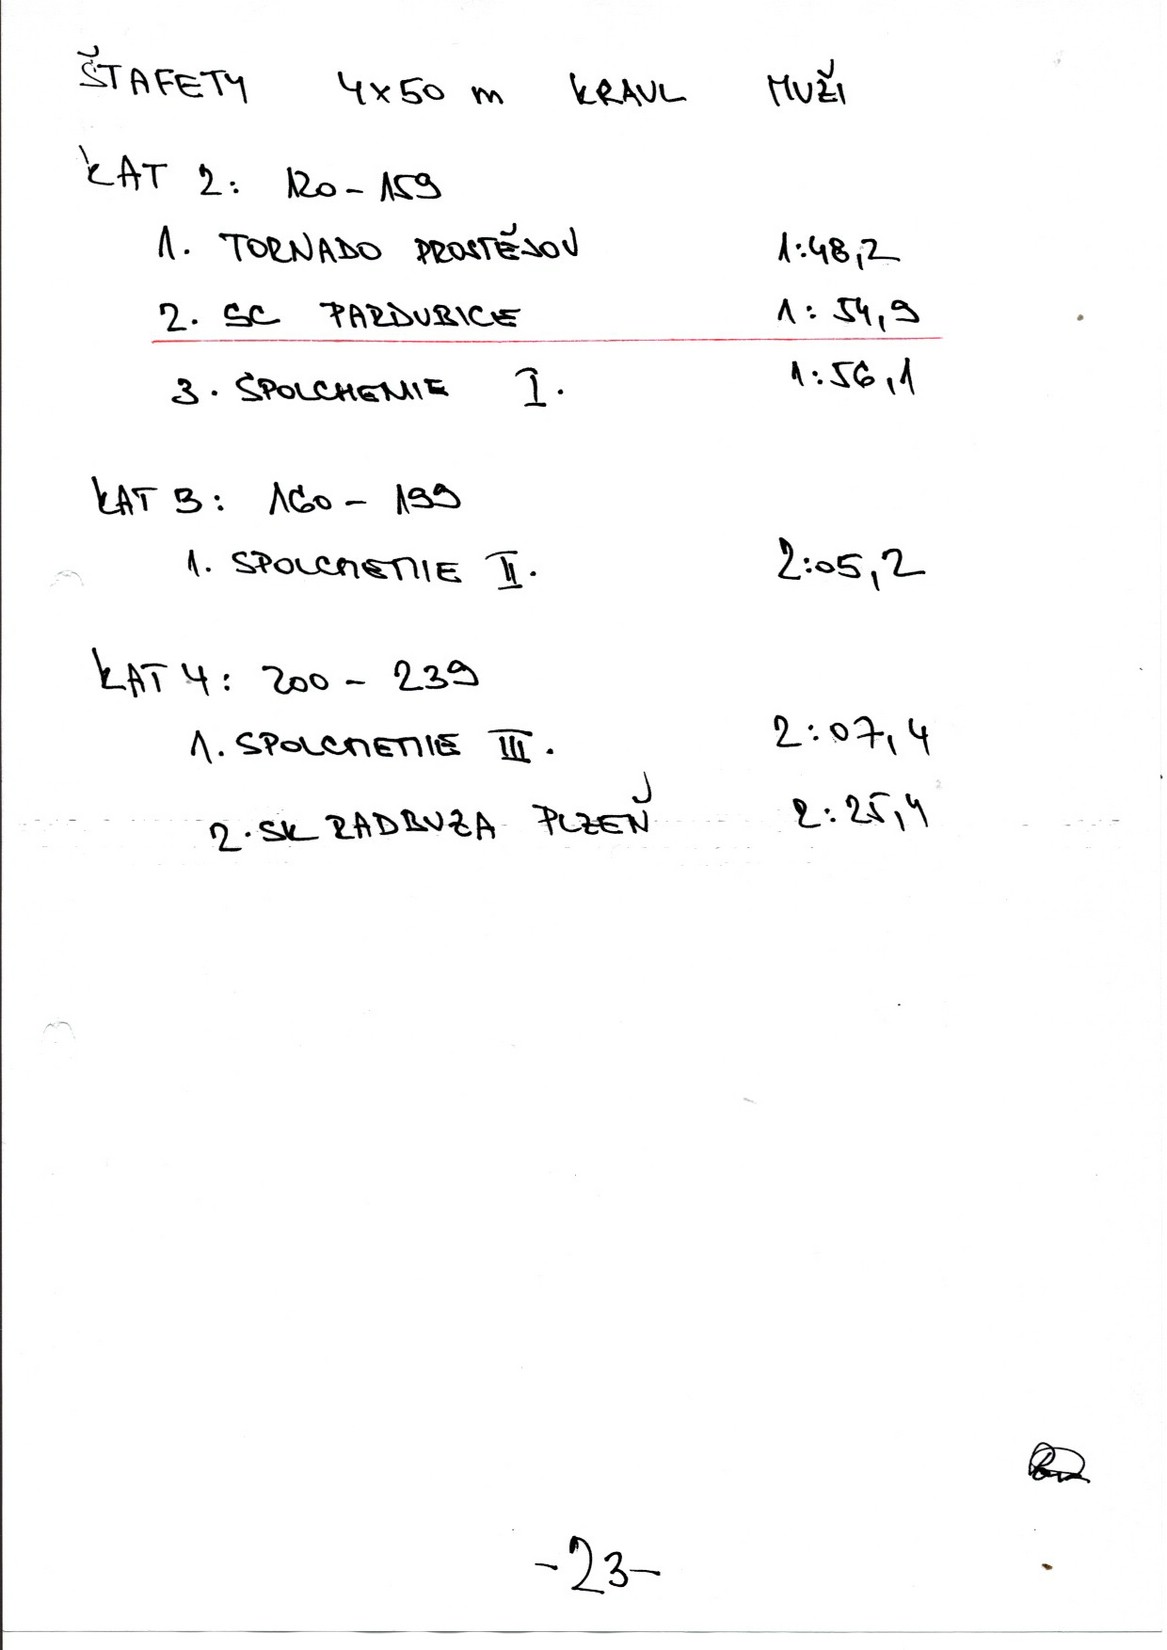 ŠTAFETY 4x50 m KRAUL MUŽI
KAT 2: 120-159
1. TORNADO PROSTĚJOV 1:48,2
2. SC PARDUBICE 1:54,9
3. SPOLCHEMIE I. 1:56,1
KAT 3: 160-199
1. SPOLCHEMIE II. 2:05,2
KAT 4: 200-239
1. SPOLCHEMIE III. 2:07,4
2. SK RADBUZA PLZEŇ 2:25,4
-23-